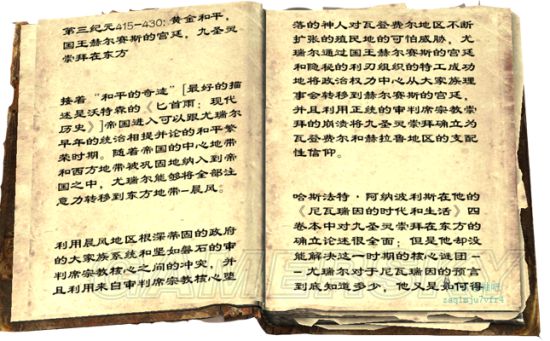 第三纪元415-430：黄金和平，
国王赫尔赛斯的宫廷，九圣灵
崇拜在东方
接着“和平的奇迹”[最好的描
述是沃特森的《匕首雨：现代
历史》]帝国进入可以跟尤瑞尔
早年的统治相提并论的和平繁
荣时期。随着帝国的中心地带
和西方地带被巩固地纳入到帝
国之中，尤瑞尔能够将全部注
意力转移到东方地带-晨风。
利用晨风地区根深蒂固的政府
的大家族系统和坚如磐石的审
判席宗教核心之间的冲突，并
且利用来自审判席宗教核心堕
落的神人对瓦登费尔地区不断
扩张的殖民地的可怕威胁，尤
瑞尔通过国王赫尔赛斯的宫廷
和隐秘的利刃组织的特工成功
地将政治权力中心从大家族理
事会转移到赫尔赛斯的宫廷，
并且利用正统的审判席宗教崇
拜的崩溃将九圣灵崇拜确立为
瓦登费尔和赫拉鲁地区的支配
性信仰。
哈斯法特·阿纳波利斯在他的
《尼瓦瑞因的时代和生活》四
卷本中对九圣灵崇拜在东方的
确立论述很全面；但是他却没
能解决这一时期的核心谜团-
-尤瑞尔对于尼瓦瑞因的预言
到底知道多少，他又是如何得
GAMERSKY
zaqimju7vfr4